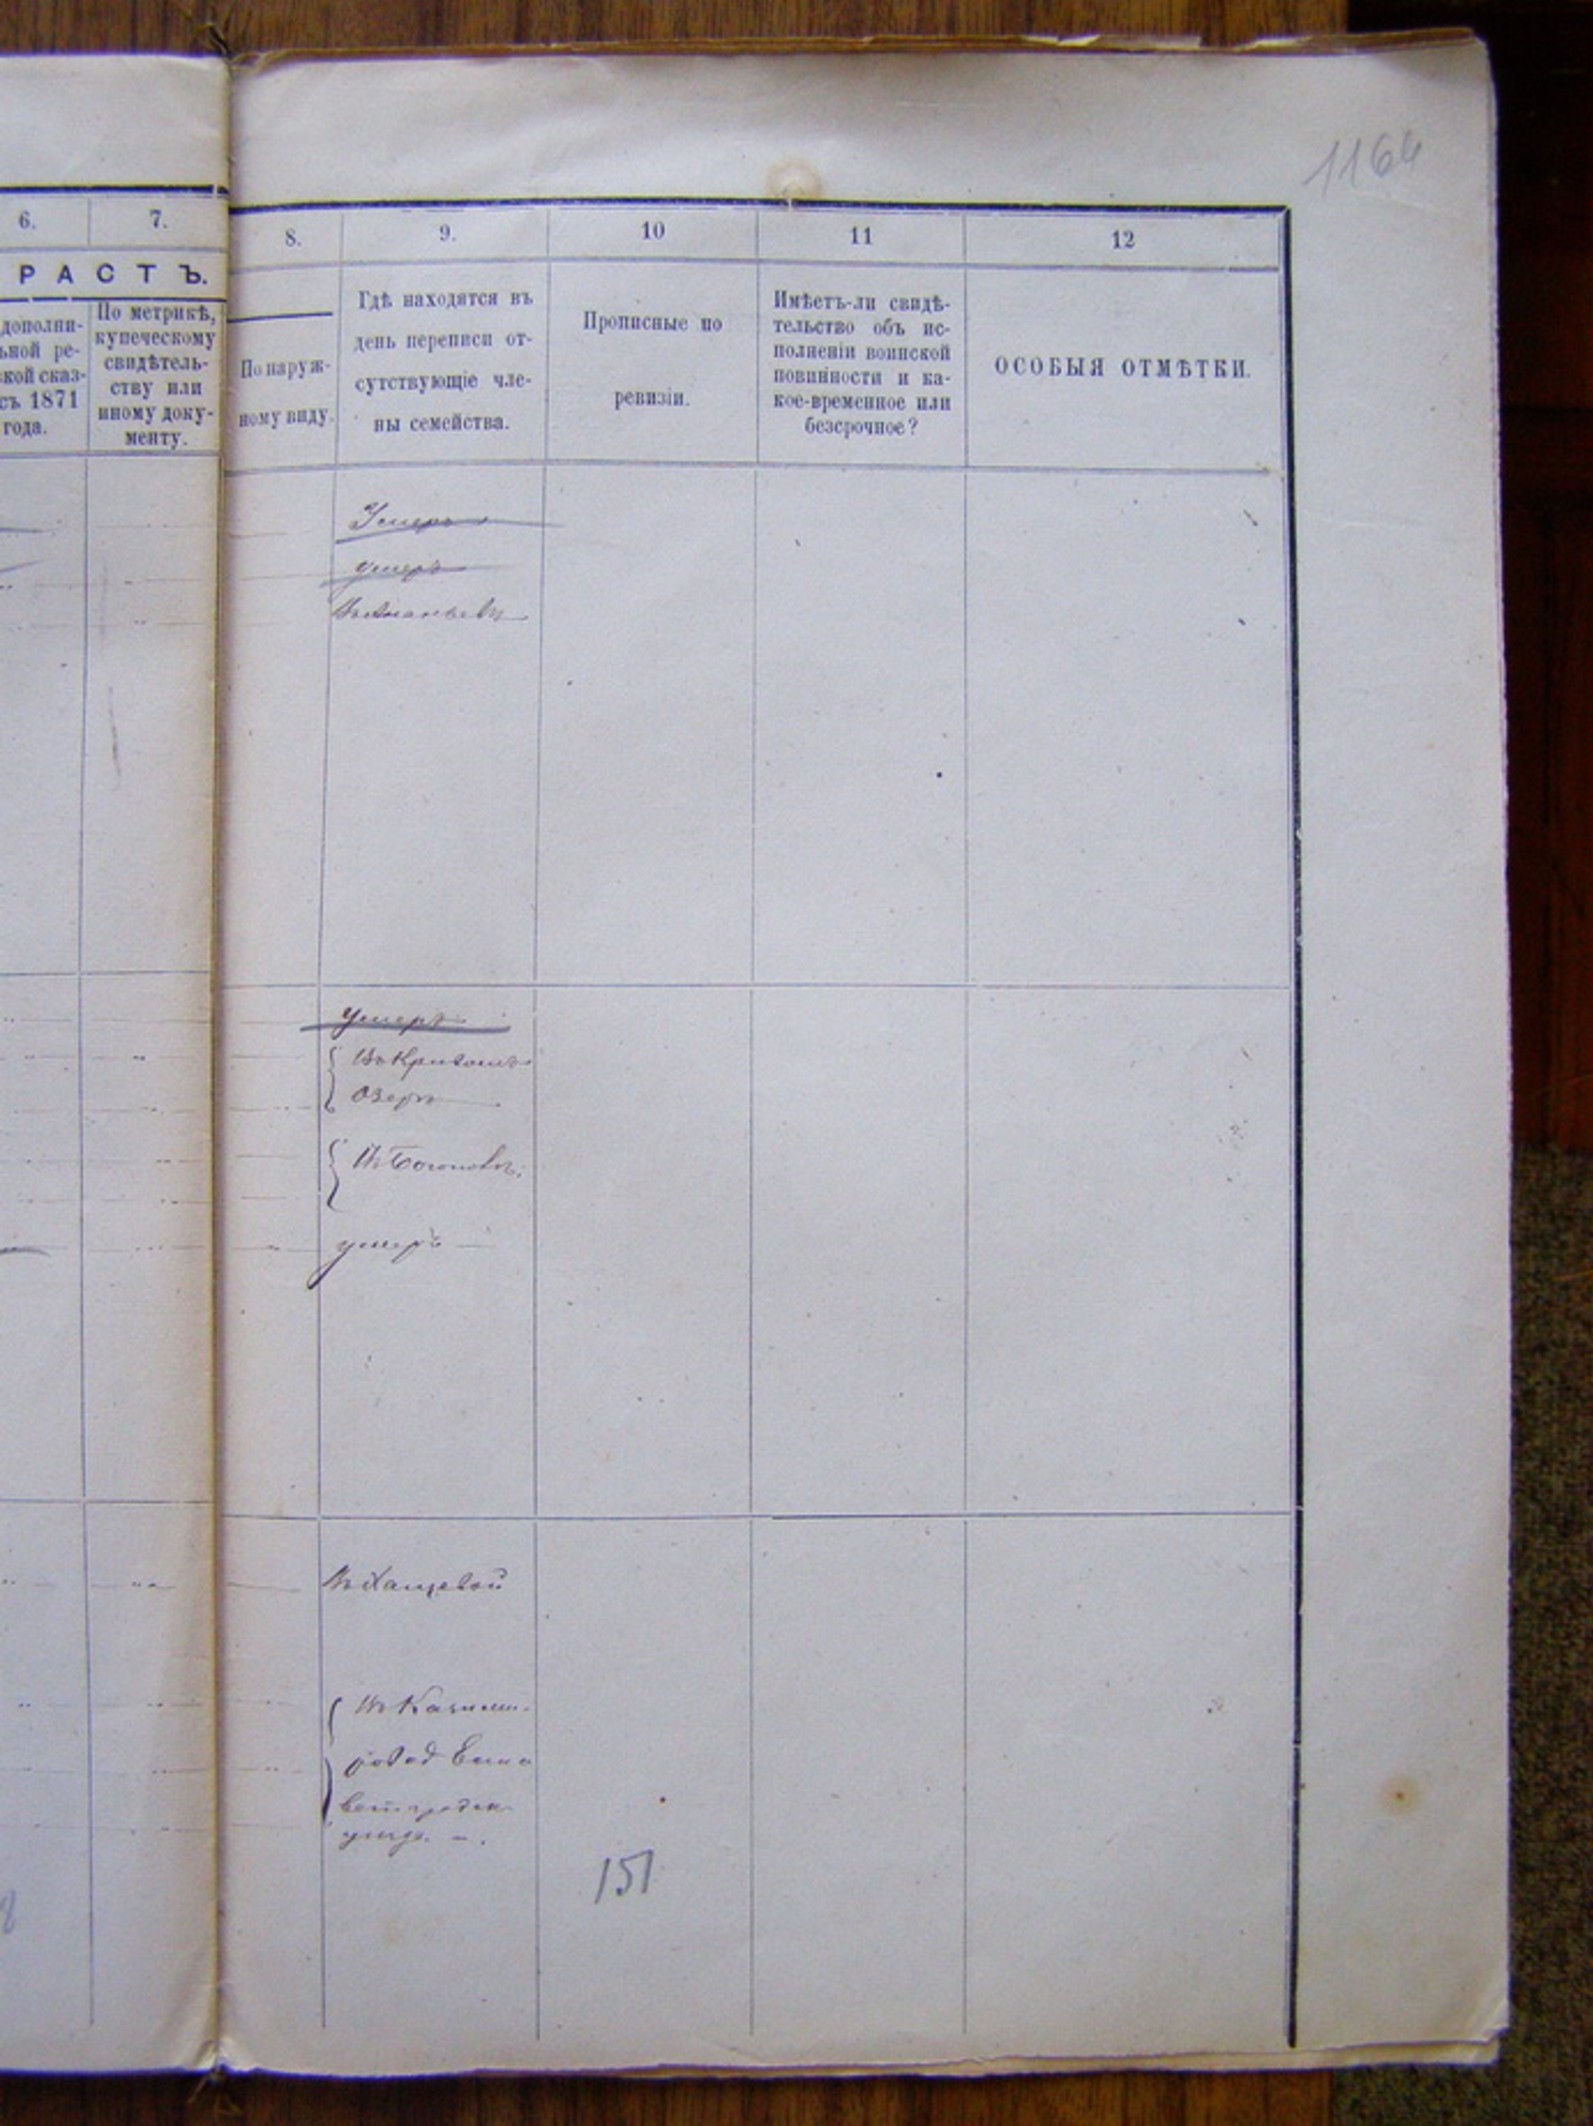 1164
6.
7.
8.
9.
10
11
12
РАСТЪ.
дополни-
ьной ре-
ской сказ-
съ 1871
года.
По метрикѣ,
купеческому
свидѣтель-
ству или
иному доку-
менту.
По наруж-
ному виду.
Гдѣ находятся въ
день переписи от-
сутствующіе чле-
ны семейства.
Прописные по
ревизіи.
Имѣетъ-ли свидѣ-
тельство объ ис-
полненіи воинской
повинности и ка-
кое-временное или
безсрочное?
ОСОБЫЯ ОТМѢТКИ.
Умеръ
умеръ
Въ Ананьевѣ
умеръ
Въ Кривомъ
Озерѣ
Въ
умеръ
Въ
Въ Казими-
ровод Елиса
ветградск
уезда.
151